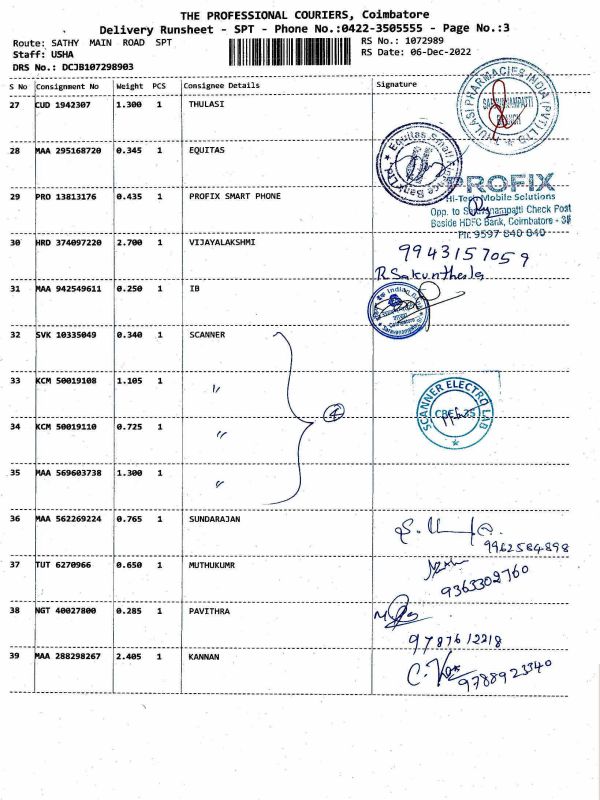 THE PROFESSIONAL COURIERS, Coimbatore
Delivery Runsheet - SPT - Phone No.:0422-3505555 - Page No.:3
Route: SATHY MAIN ROAD SPT
RS No.: 1072989
Staff: USHA
RS Date: 06-Dec-2022
DRS No.: DCJB107298903
S No Consignment No Weight PCS Consignee Details Signature
27 CUD 1942307 1.300 1 THULASI
THULASI PHARMACIES INDIA (PVT) LTD
BRANCH
28 MAA 295168720 0.345 1 EQUITAS
Equitas Small Finance Bank Ltd
29 PRO 13813176 0.435 1 PROFIX SMART PHONE
PROFIX
Hi-Tech Mobile Solutions
Opp. to Saravanampatti Check Post
Beside HDFC Bank, Coimbatore - 35
Ph: 9597 840 840
30 HRD 374097220 2.700 1 VIJAYALAKSHMI
9943157059
R Sakunthala
31 MAA 942549611 0.250 1 IB
Indian
32 SVK 10335049 0.340 1 SCANNER
33 KCM 50019108 1.105 1 "
4
SCANNER ELECTRO LAB
34 KCM 50019110 0.725 1 "
35 MAA 569603738 1.300 1 "
36 MAA 562269224 0.765 1 SUNDARAJAN
9962584898
37 TUT 6270966 0.650 1 MUTHUKUMR
9363302760
38 NGT 40027800 0.285 1 PAVITHRA
9787612218
39 MAA 288298267 2.405 1 KANNAN
9788923340